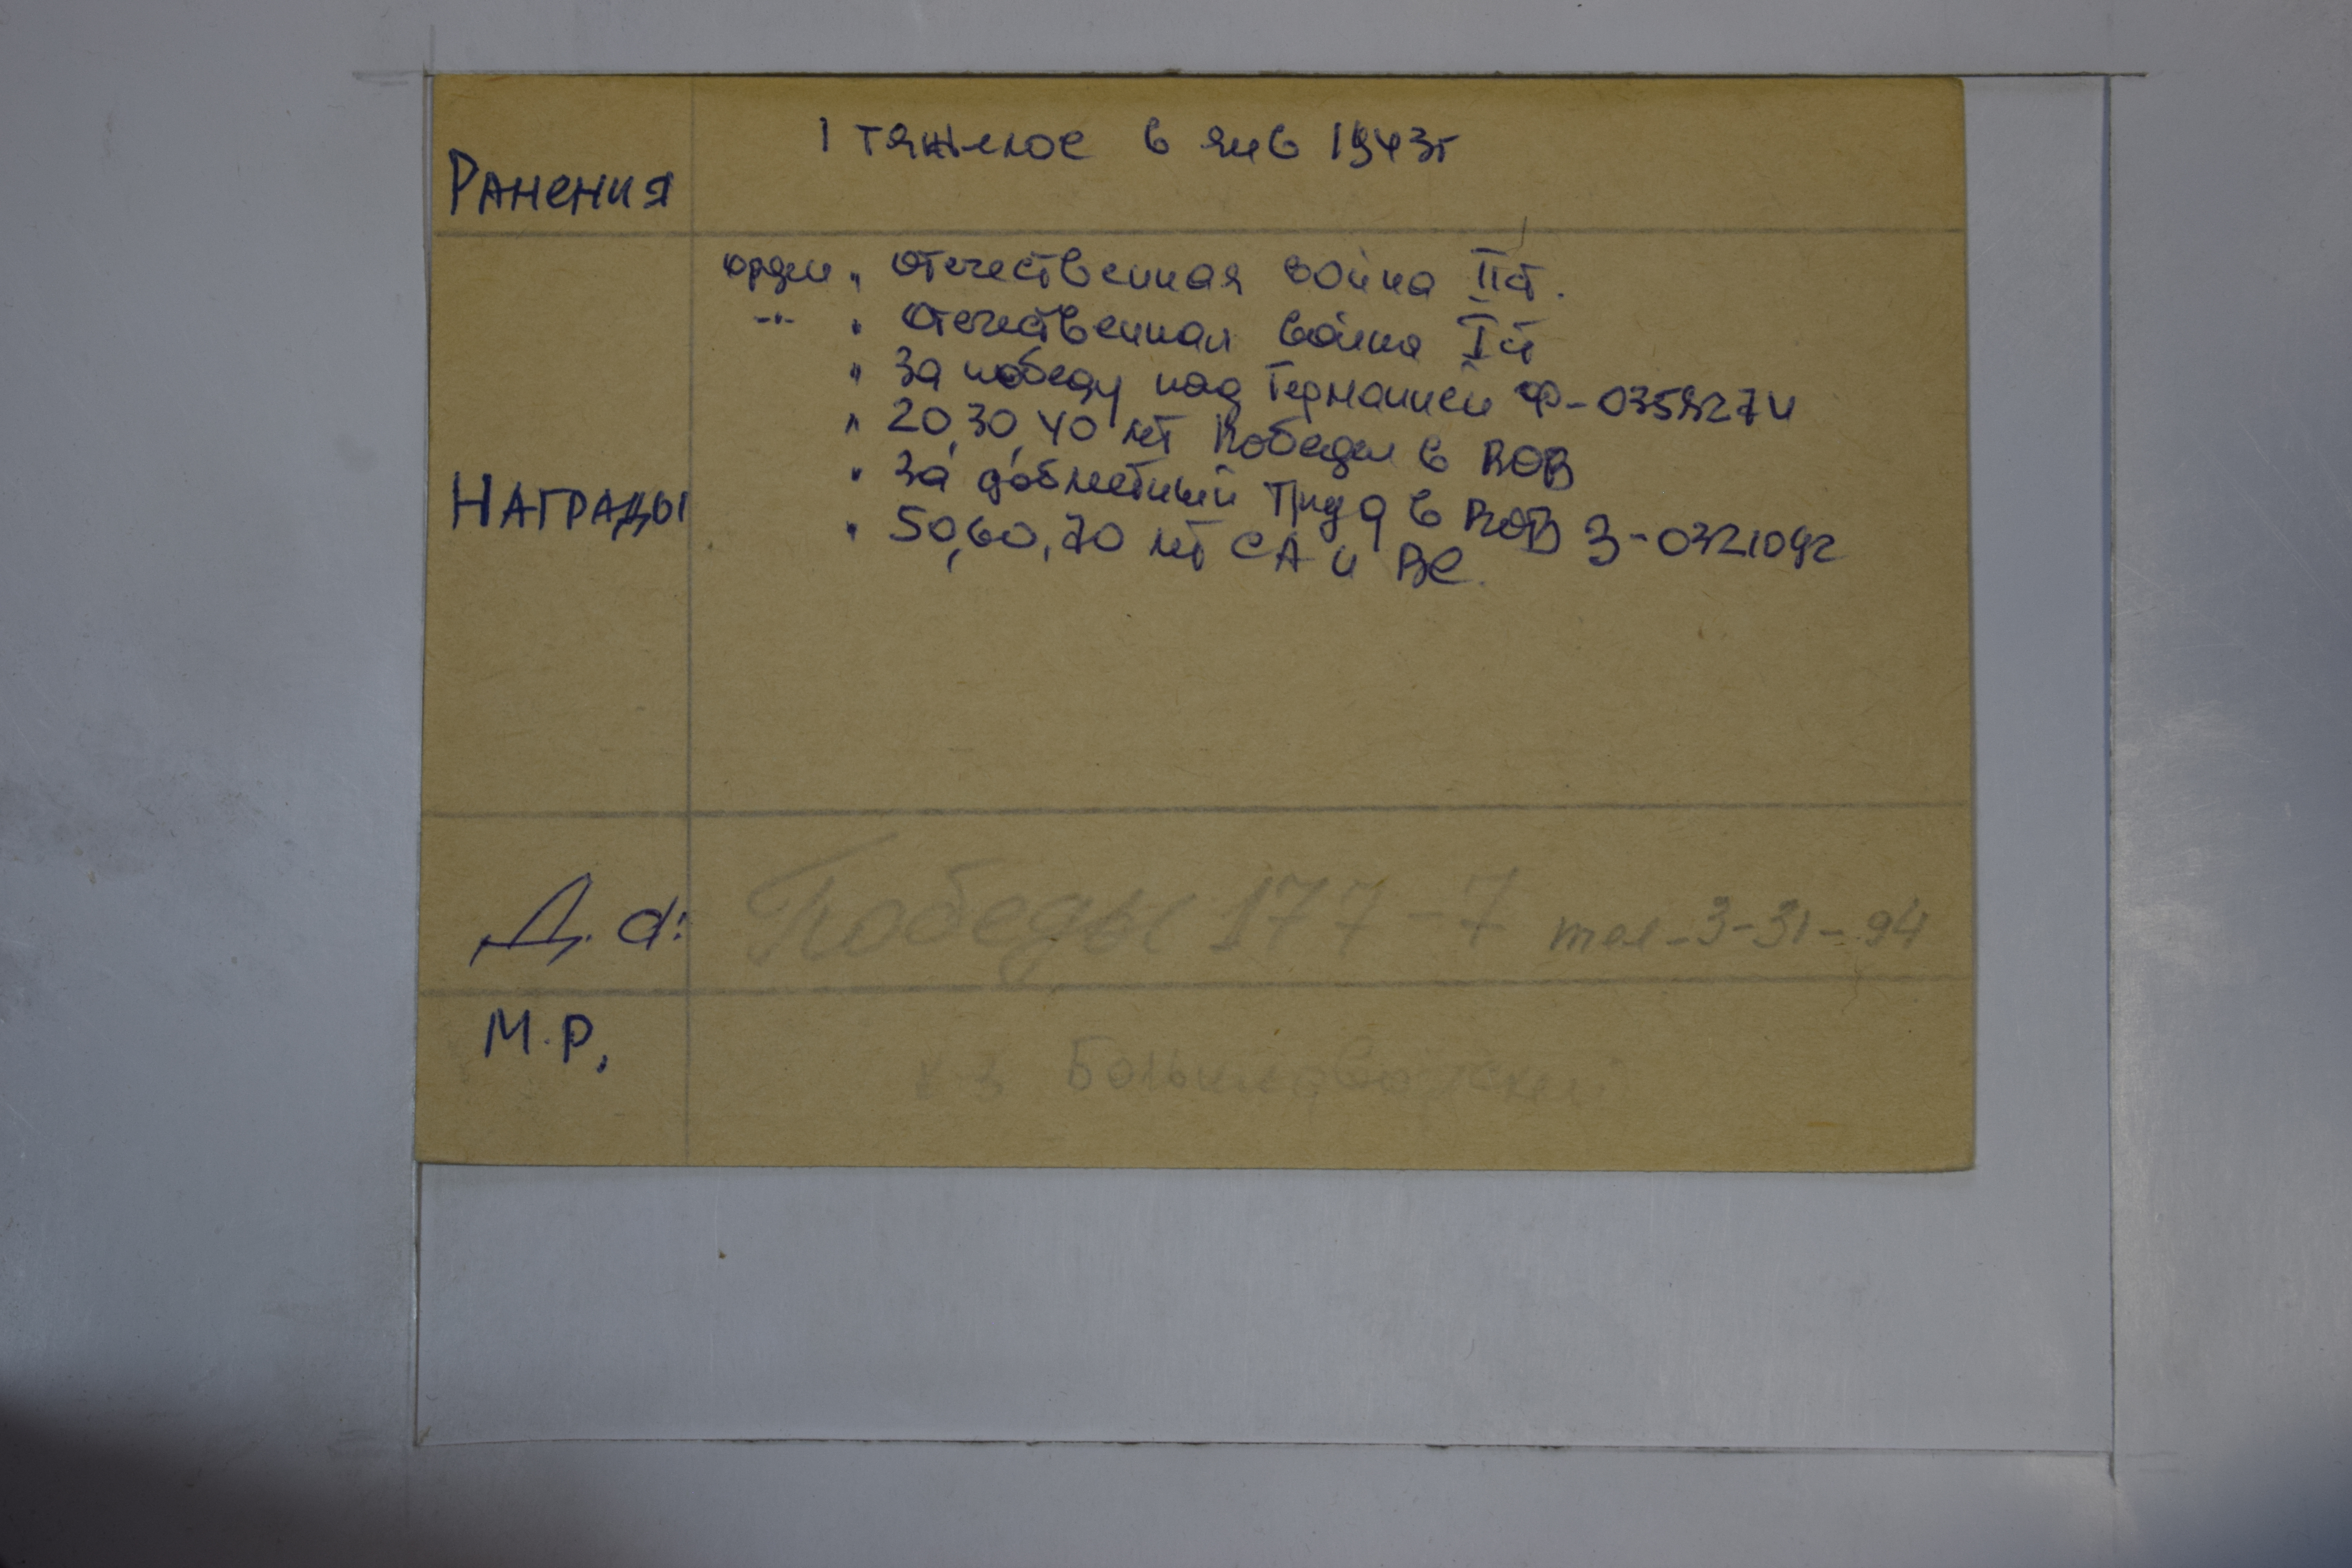 Ранения
1 тяжелое в янв 1943г
Награды
орден " Отечественная война II ст.
-"- " Отечественная война I ст
" За победу над Германией Ф-0359274
" 20, 30, 40 лет Победы в ВОВ
" За доблестный труд в ВОВ З-0321092
" 50, 60, 70 лет СА и ВС.
Д. а: Победы 177-7 тел-3-31-94
М.Р.